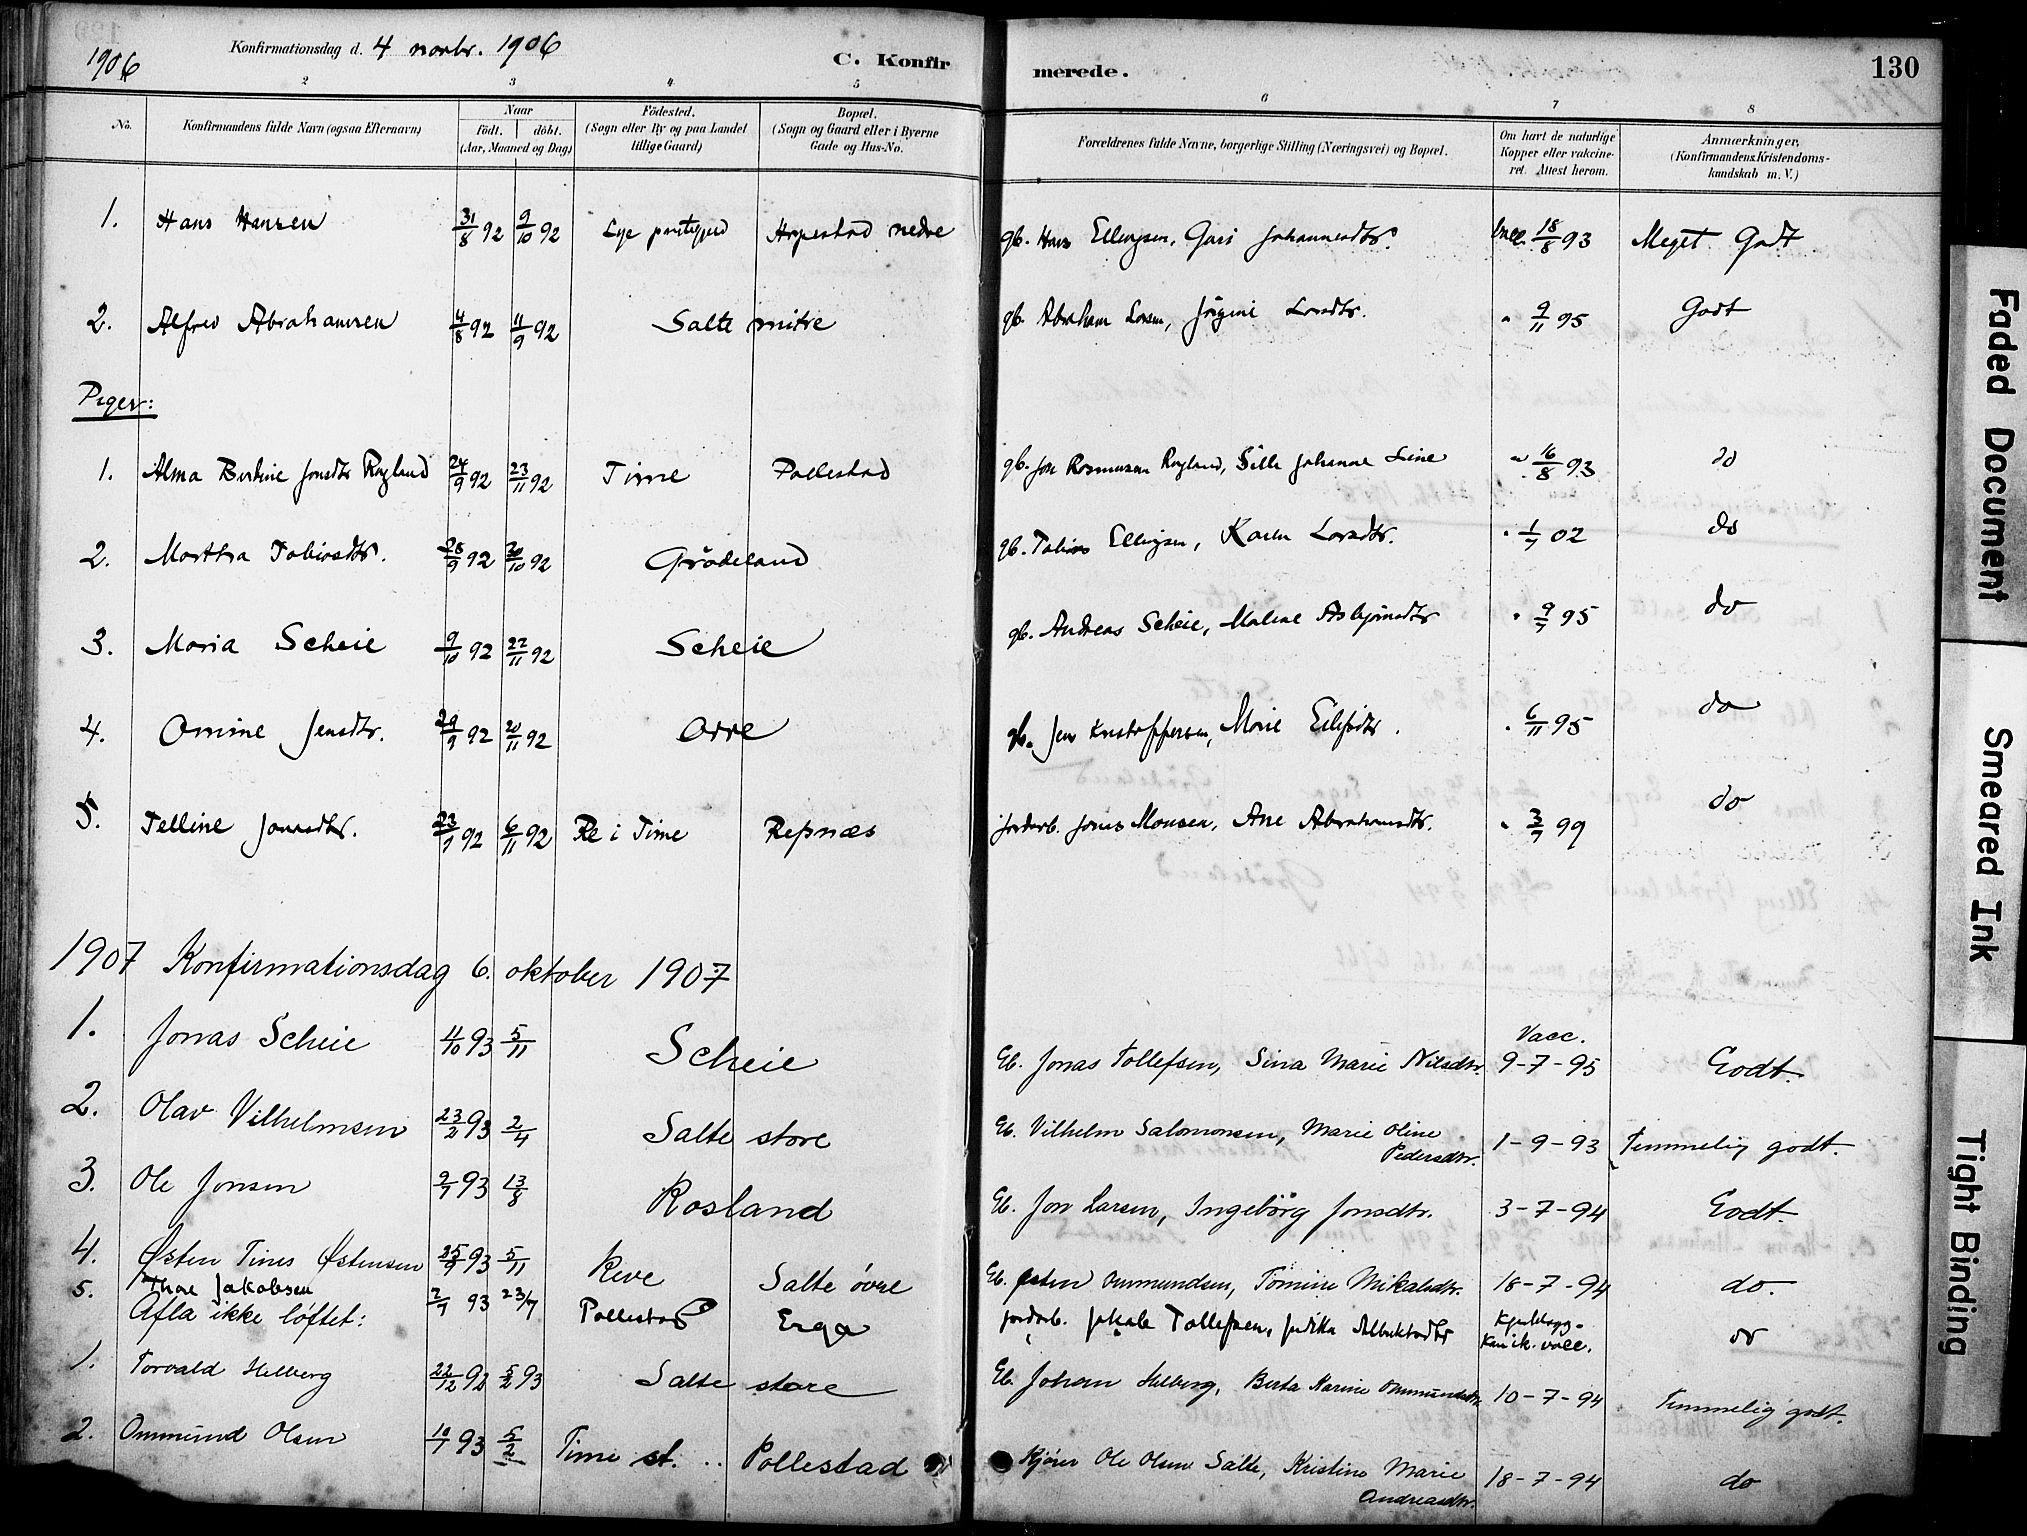 1906
Konfirmationsdag d. 4 novbr. 1906
C. Konfirmerede.
130
2 3 4 5 6 7 8
No.
Konfirmandens fulde Navn (ogsaa Efternavn)
Naar
födt. döbt.
(Aar, Maaned og Dag)
Födested.
(Sogn eller By og paa Landet
tillige Gaard)
Bopæl.
(Sogn og Gaard eller i Byerne
Gade og Hus-No.
Forældrenes fulde Navne, borgerlige Stilling (Næringsvei) og Bopæl.
Om havt de naturlige
Kopper eller vakcine-
ret. Attest herom.
Anmærkninger.
(Konfirmandens Kristendoms-
kundskab m. V.)
1. Hans Hansen 31/8 92 9/10 92 Lye Hapestad nedre gb. Hans Ellingsen, Guri Johannesdtr. vacc. 18/8 93 Meget Godt
2. Alfred Abrahamsen 4/8 92 11/9 92 Salte mitre gb. Abraham Larsen, Jörgine Larsdtr. " 9/11 95 Godt
Piger:
1. Alma Bertine Jonsdtr Rogland 24/9 92 23/11 92 Time Pollestad gb. Jon Rasmussen Rogland, Sille Johanne Line " 16/8 93 do
2. Martha Tobiasdtr. 28/9 92 30/10 92 Grödeland gb. Tobias Ellingsen, Karen Larsdtr. " 1/7 02 do
3. Maria Scheie 9/10 92 22/11 92 Scheie gb. Andreas Scheie, Malene Asbjörnsdtr " 9/7 95 do
4. Omine Jensdtr. 29/9 92 20/11 92 Orre gb. Jens Kristoffersen, Marie Eilefsdtr. " 6/11 95 do
5. Telline Jonasdtr. 23/9 92 6/11 92 Re i Time Refsnæs forderb. Jonas Monsen, Ane Abrahamsdtr. " 3/7 99 do
1907 Konfirmationsdag 6. oktober 1907
1. Jonas Scheie 4/10 93 5/11 Scheie Gb. Jonas Tollefsen, Sina Marie Nilsdtr. Vacc. 9-7-95 Godt.
2. Olav Vilhelmsen 23/2 93 2/4 Salte store Gb. Vilhelm Salomonsen, Marie Oline Pedersdtr. 1-9-93 Temmelig godt.
3. Ole Jonsen 2/7 93 13/8 Rosland Gb. Jon Larsen, Ingebörg Jonsdtr. 3-7-94 Godt.
4. Østen Tines Østensen 25/9 93 5/11 Reve Salte övre Gb. Østen Ommundsen, Tomine Mikalsdtr. 18-7-94 do.
5. Thore Jakobsen 2/7 93 23/7 Pollestad Erga jorderb. Jakob Tollefsen, Juditha Albrektsdtr Kan ik. vacc. do
Afla ikke löftet:
1. Torvald Helberg 22/12 92 5/2 93 Salte store Gb. Johan Helberg, Berta Karine Ommundsdtr. 10-7-94 Temmelig godt.
2. Ommund Olsen 10/1 93 5/2 Time st. Pollestad Kjörer Ole Olsen Salte, Kristine Marie Andreasdtr. 18-7-94 do
Faded Document
Smeared Ink
Tight Binding